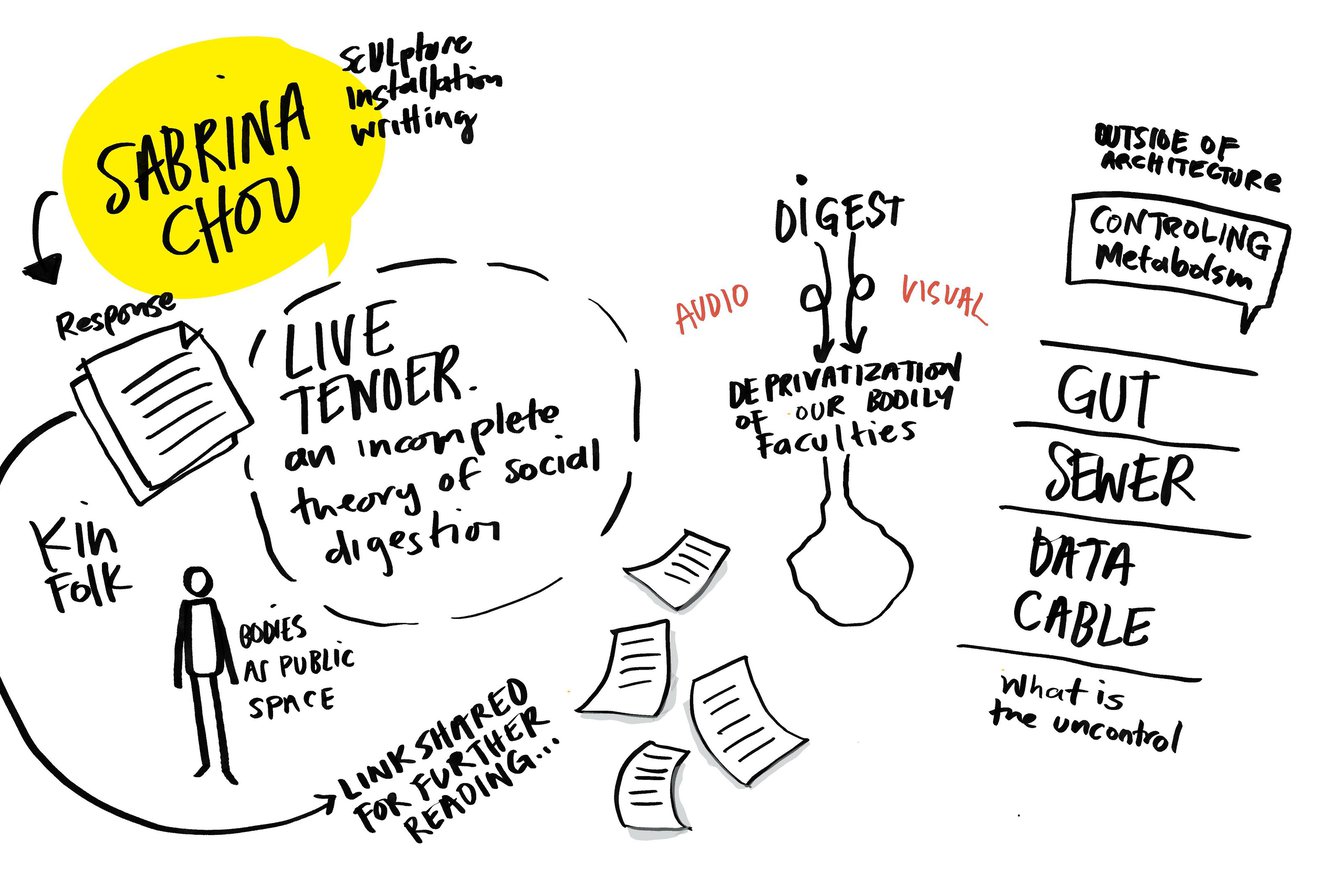 SABRINA
CHOU
Sculpture
Installation
writting
Response
LIVE
TENDER.
an incomplete
theory of social
digestion
Kin
Folk
BODIES
AS PUBLIC
SPACE
LINK SHARED
FOR FURTHER
READING...
DIGEST
AUDIO
VISUAL
DEPRIVATIZATION
OF OUR BODILY
Faculties
OUTSIDE OF
ARCHITECTURE
CONTROLING
Metabolsm
GUT
SEWER
DATA
CABLE
What is
the uncontrol